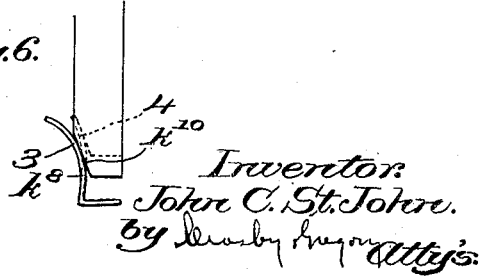 .6.
4
k¹⁰
3
k⁸
Inventor.
John C. St. John.
by Crosby Gregory Att'ys.